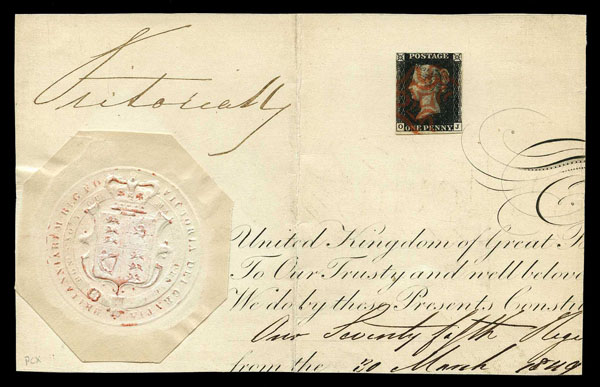 Victoria R
POSTAGE
ONE PENNY
O J
BRITANNIARUM REG. F. D.
VICTORIA DEI GRATIA
United Kingdom of Great
To Our Trusty and well belov
We do by these Presents Constitu
Our Seventy fifth Regi
from the 30 March 1849
PCX